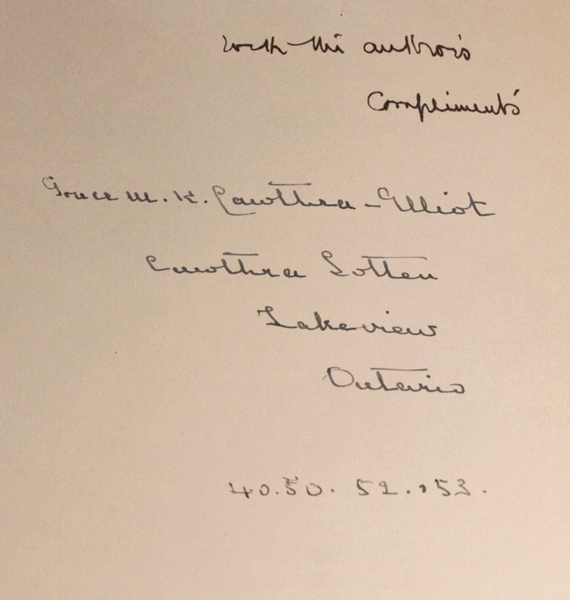 with the author's
Compliments
Grace M. K. Cawthra-Elliot
Cawthra Lotten
Lakeview
Ontario
40.50. 52..53.